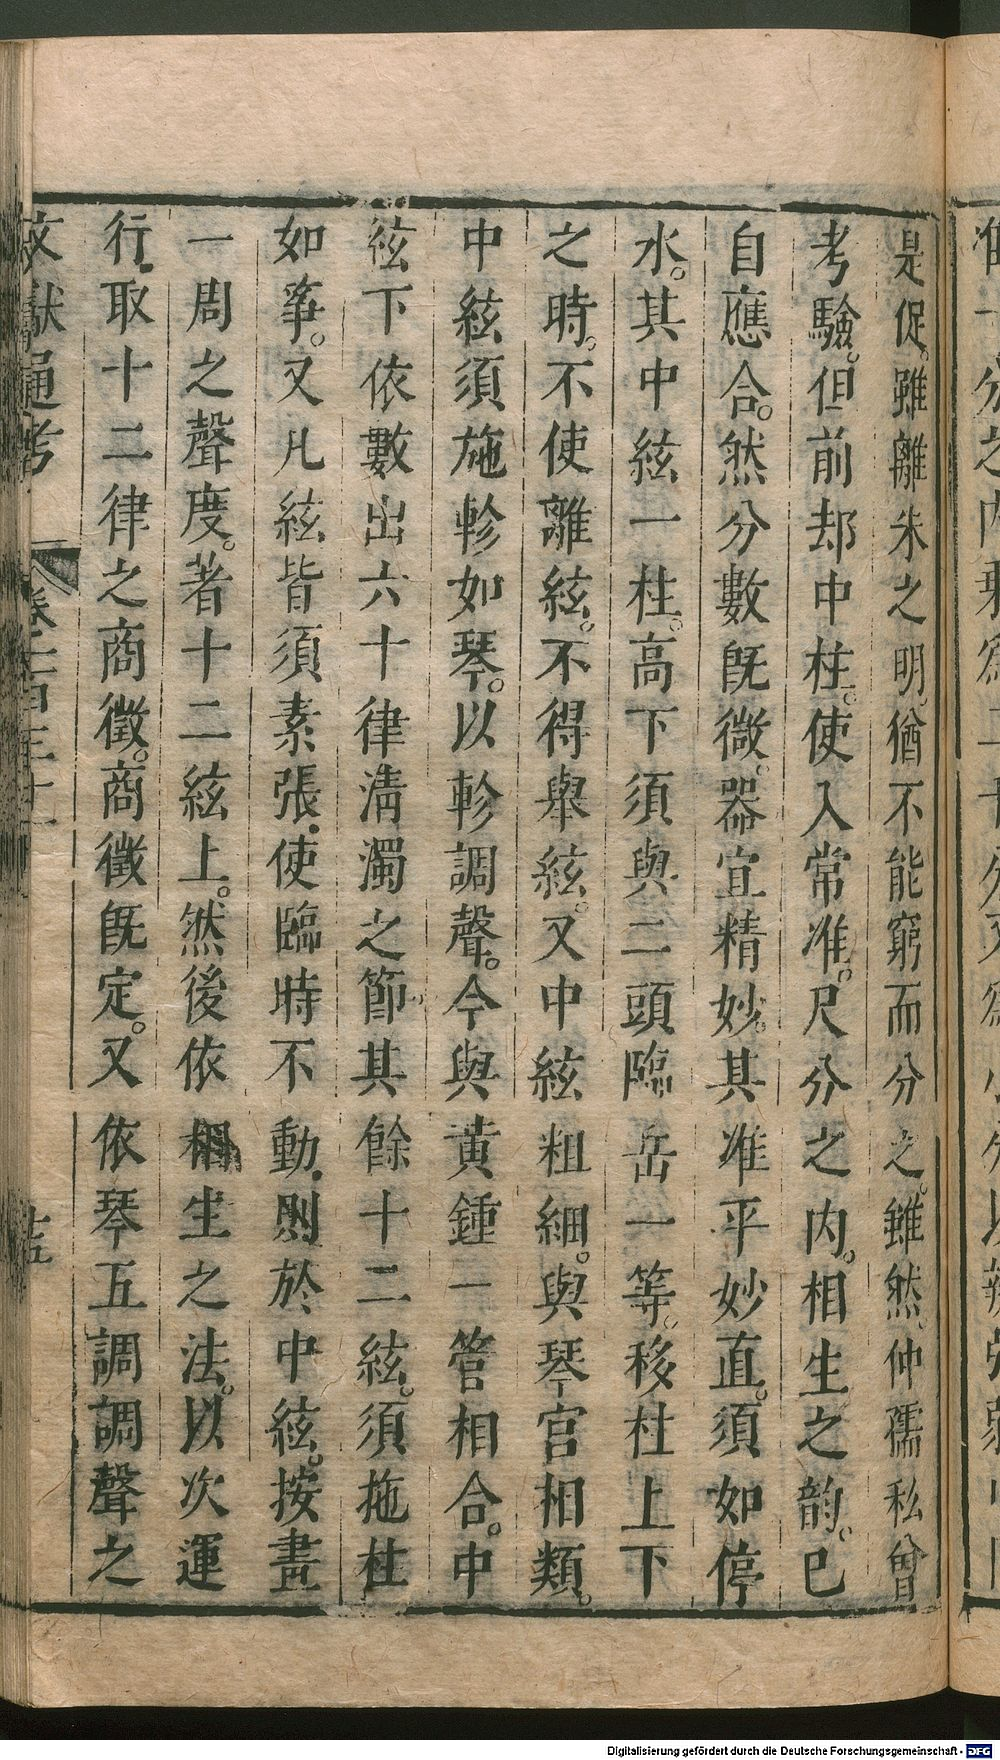 是促。雖離朱之明。猶不能窮而分之。雖然。仲儒私曾
考驗。但前却中柱。使入常准。尺分之内。相生之韵。已
自應合。然分數旣微。器宜精妙。其准平妙直。須如停
水。其中絃一柱。高下須與二頭臨岳一等。移柱上下
之時。不使離絃。不得舉絃。又中絃粗細。與琴宮相類。
中絃須施軫如琴。以軫調聲。今與黃鍾一管相合。中
絃下依數出六十律淸濁之節。其餘十二絃。須拖柱
如筝。又凡絃皆須素張。使臨時不動。則於中絃。按畫
一周之聲度。著十二絃上。然後依相生之法。以次運
行。取十二律之商徵。商徵旣定。又依琴五調調聲之
文獻通考 卷一百三十一 十五
Digitalisierung gefördert durch die Deutsche Forschungsgemeinschaft - DFG